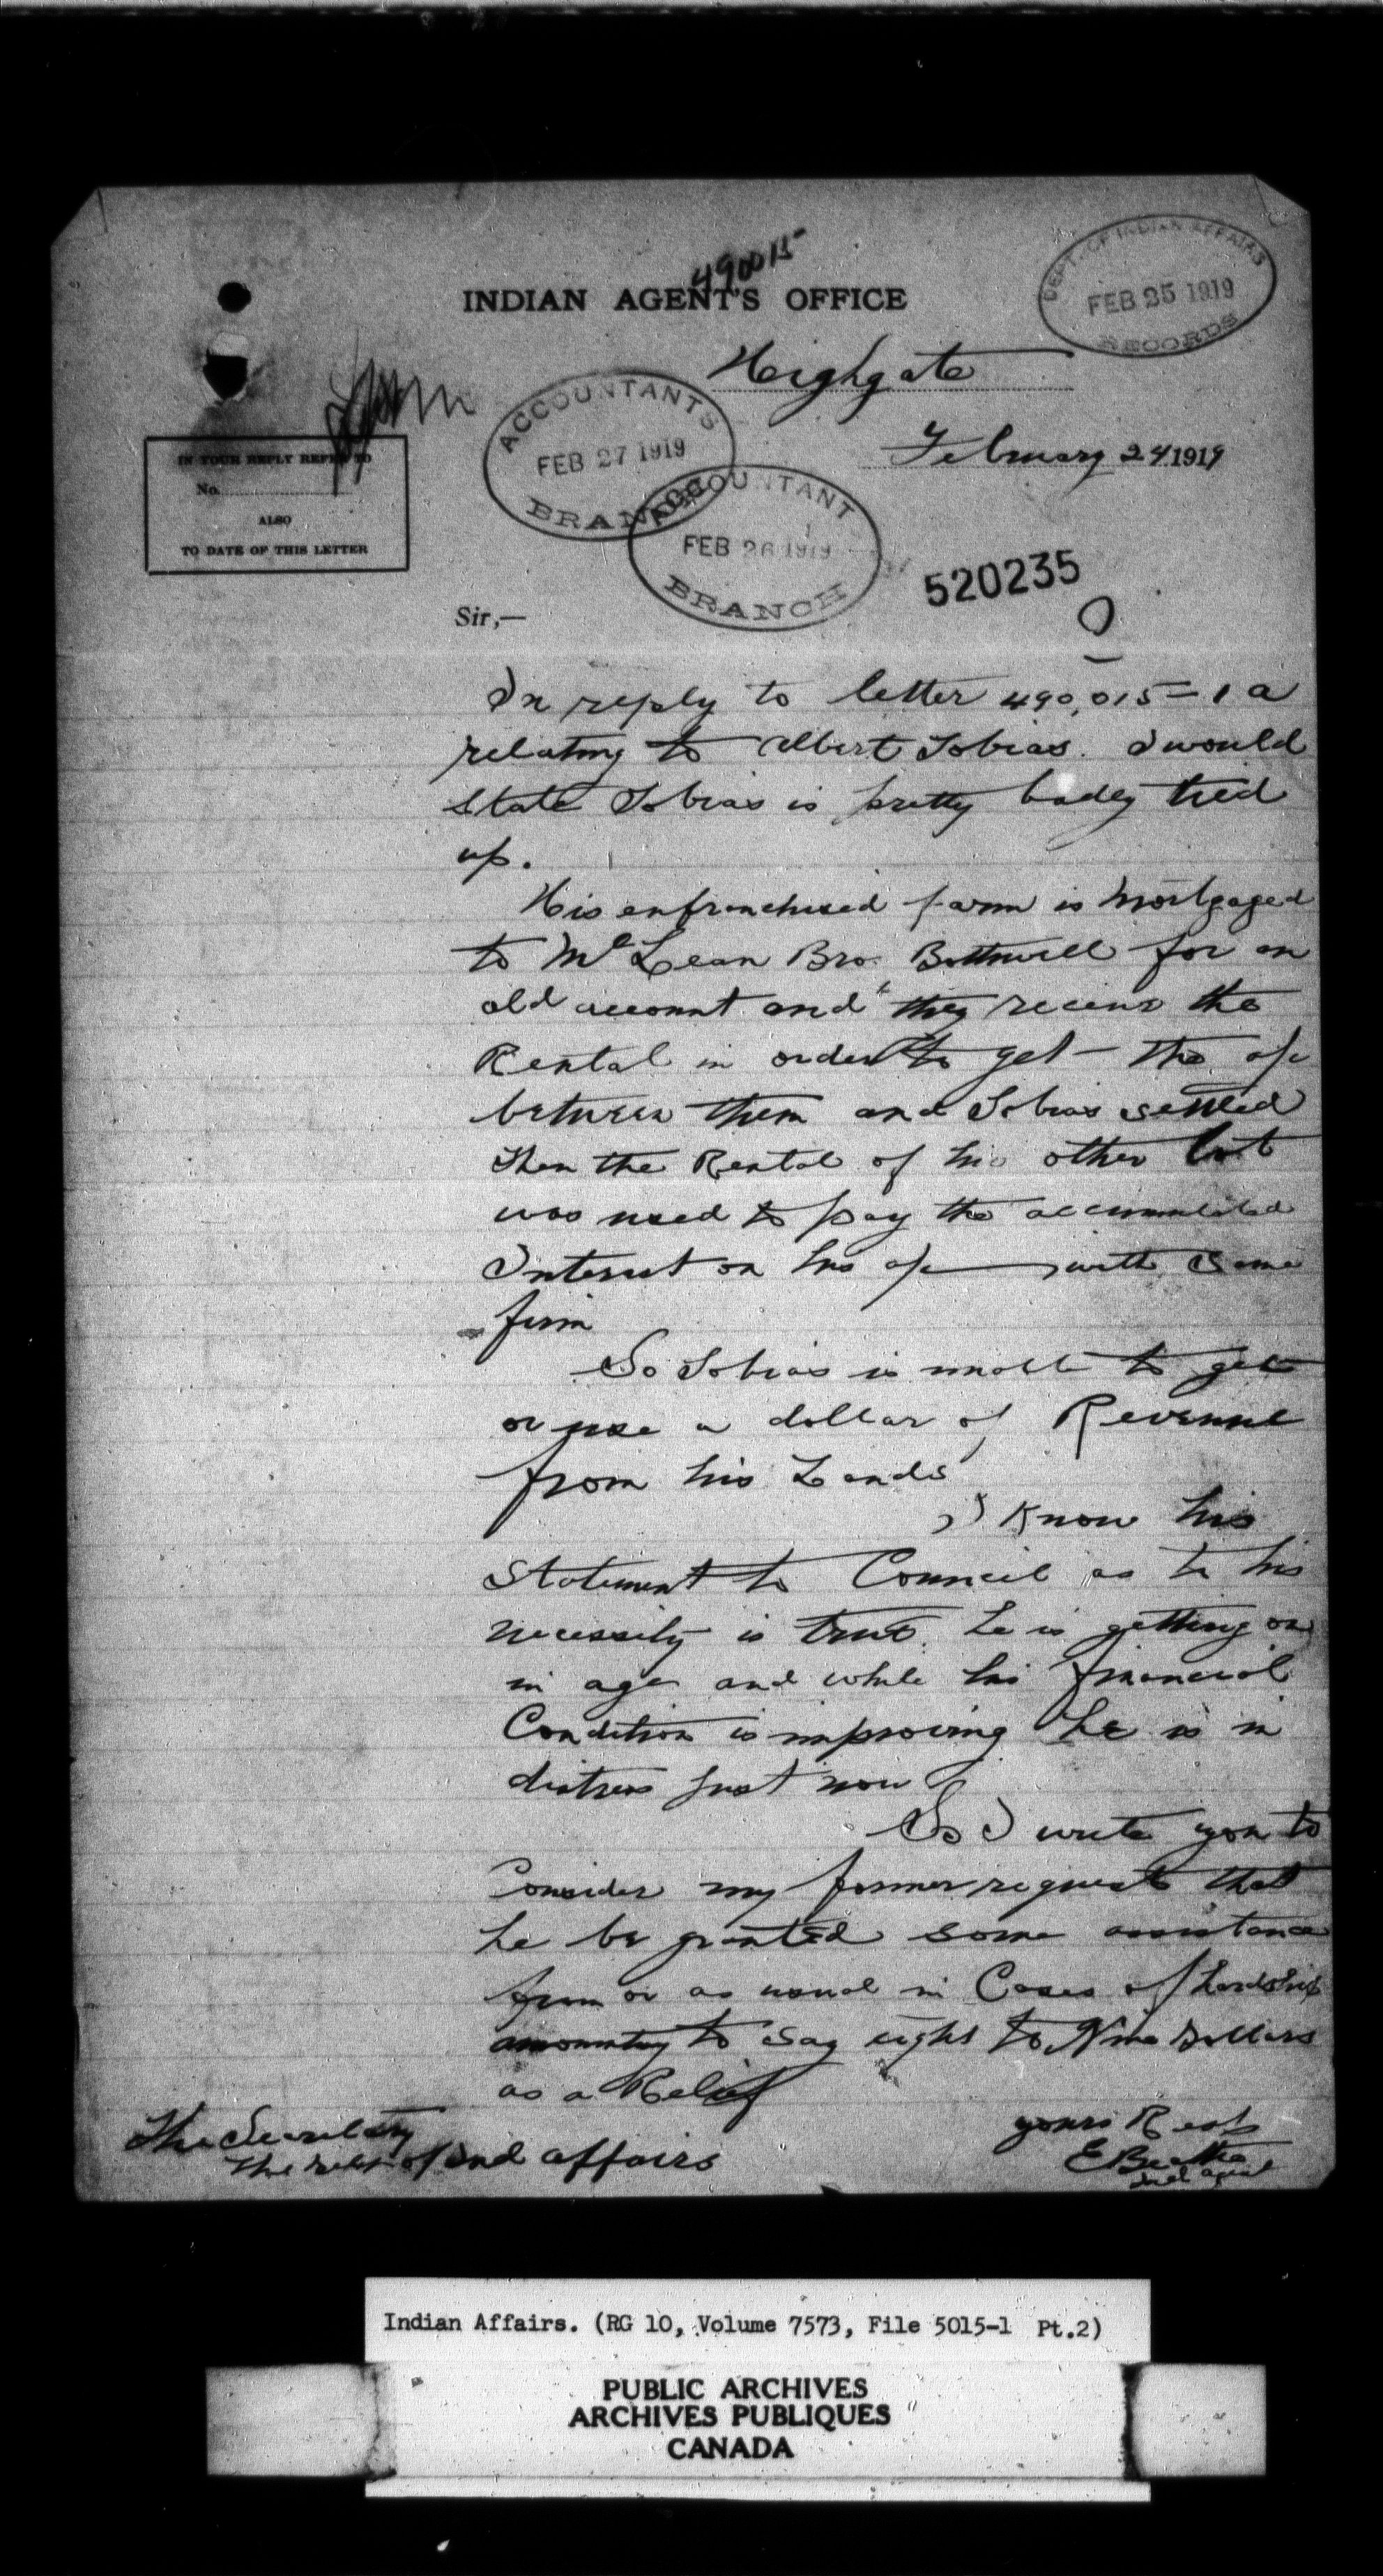 490015
INDIAN AGENT'S OFFICE
DEPT. OF INDIAN AFFAIRS
FEB 25 1919
RECORDS
Highgate
ACCOUNTANT'S
FEB 27 1919
BRANCH
February 24 1919
IN YOUR REPLY REFER TO
No.
ALSO
TO DATE OF THIS LETTER
ACCOUNTANT
FEB 26 1919
BRANCH
520235
Sir,—
In reply to letter 490,015-1a
relating to Albert Tobias. I would
state Tobias is pretty badly tied
up.
His enfranchised farm is mortgaged
to McLean Bro. Bothwell for an
old account and they receive the
Rental in order to get the a/c
between them and Tobias settled
Then the Rental of his other lot
was used to pay the accumulated
Interest on his a/c with same
firm
So Tobias is unable to get
or use a dollar of Revenue
from his Lands
I know his
statement to Council as to his
necessity is true. he is getting on
in age and while his financial
Condition is improving he is in
distress just now
So I write you to
Consider my former request that
he be granted some assistance
from or as usual in Cases of hardship
amounting to say eight to Nine Dollars
as a Relief
yours Resp
The Secretary
The Dept of Ind affairs
E Beattie
Ind agent
Indian Affairs. (RG 10, Volume 7573, File 5015-1 Pt.2)
PUBLIC ARCHIVES
ARCHIVES PUBLIQUES
CANADA